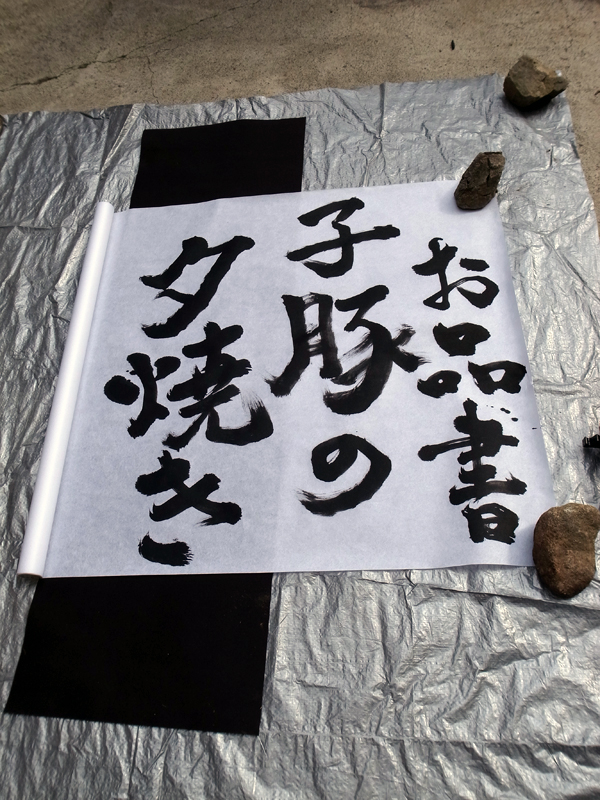 お品書
子豚の
夕焼き